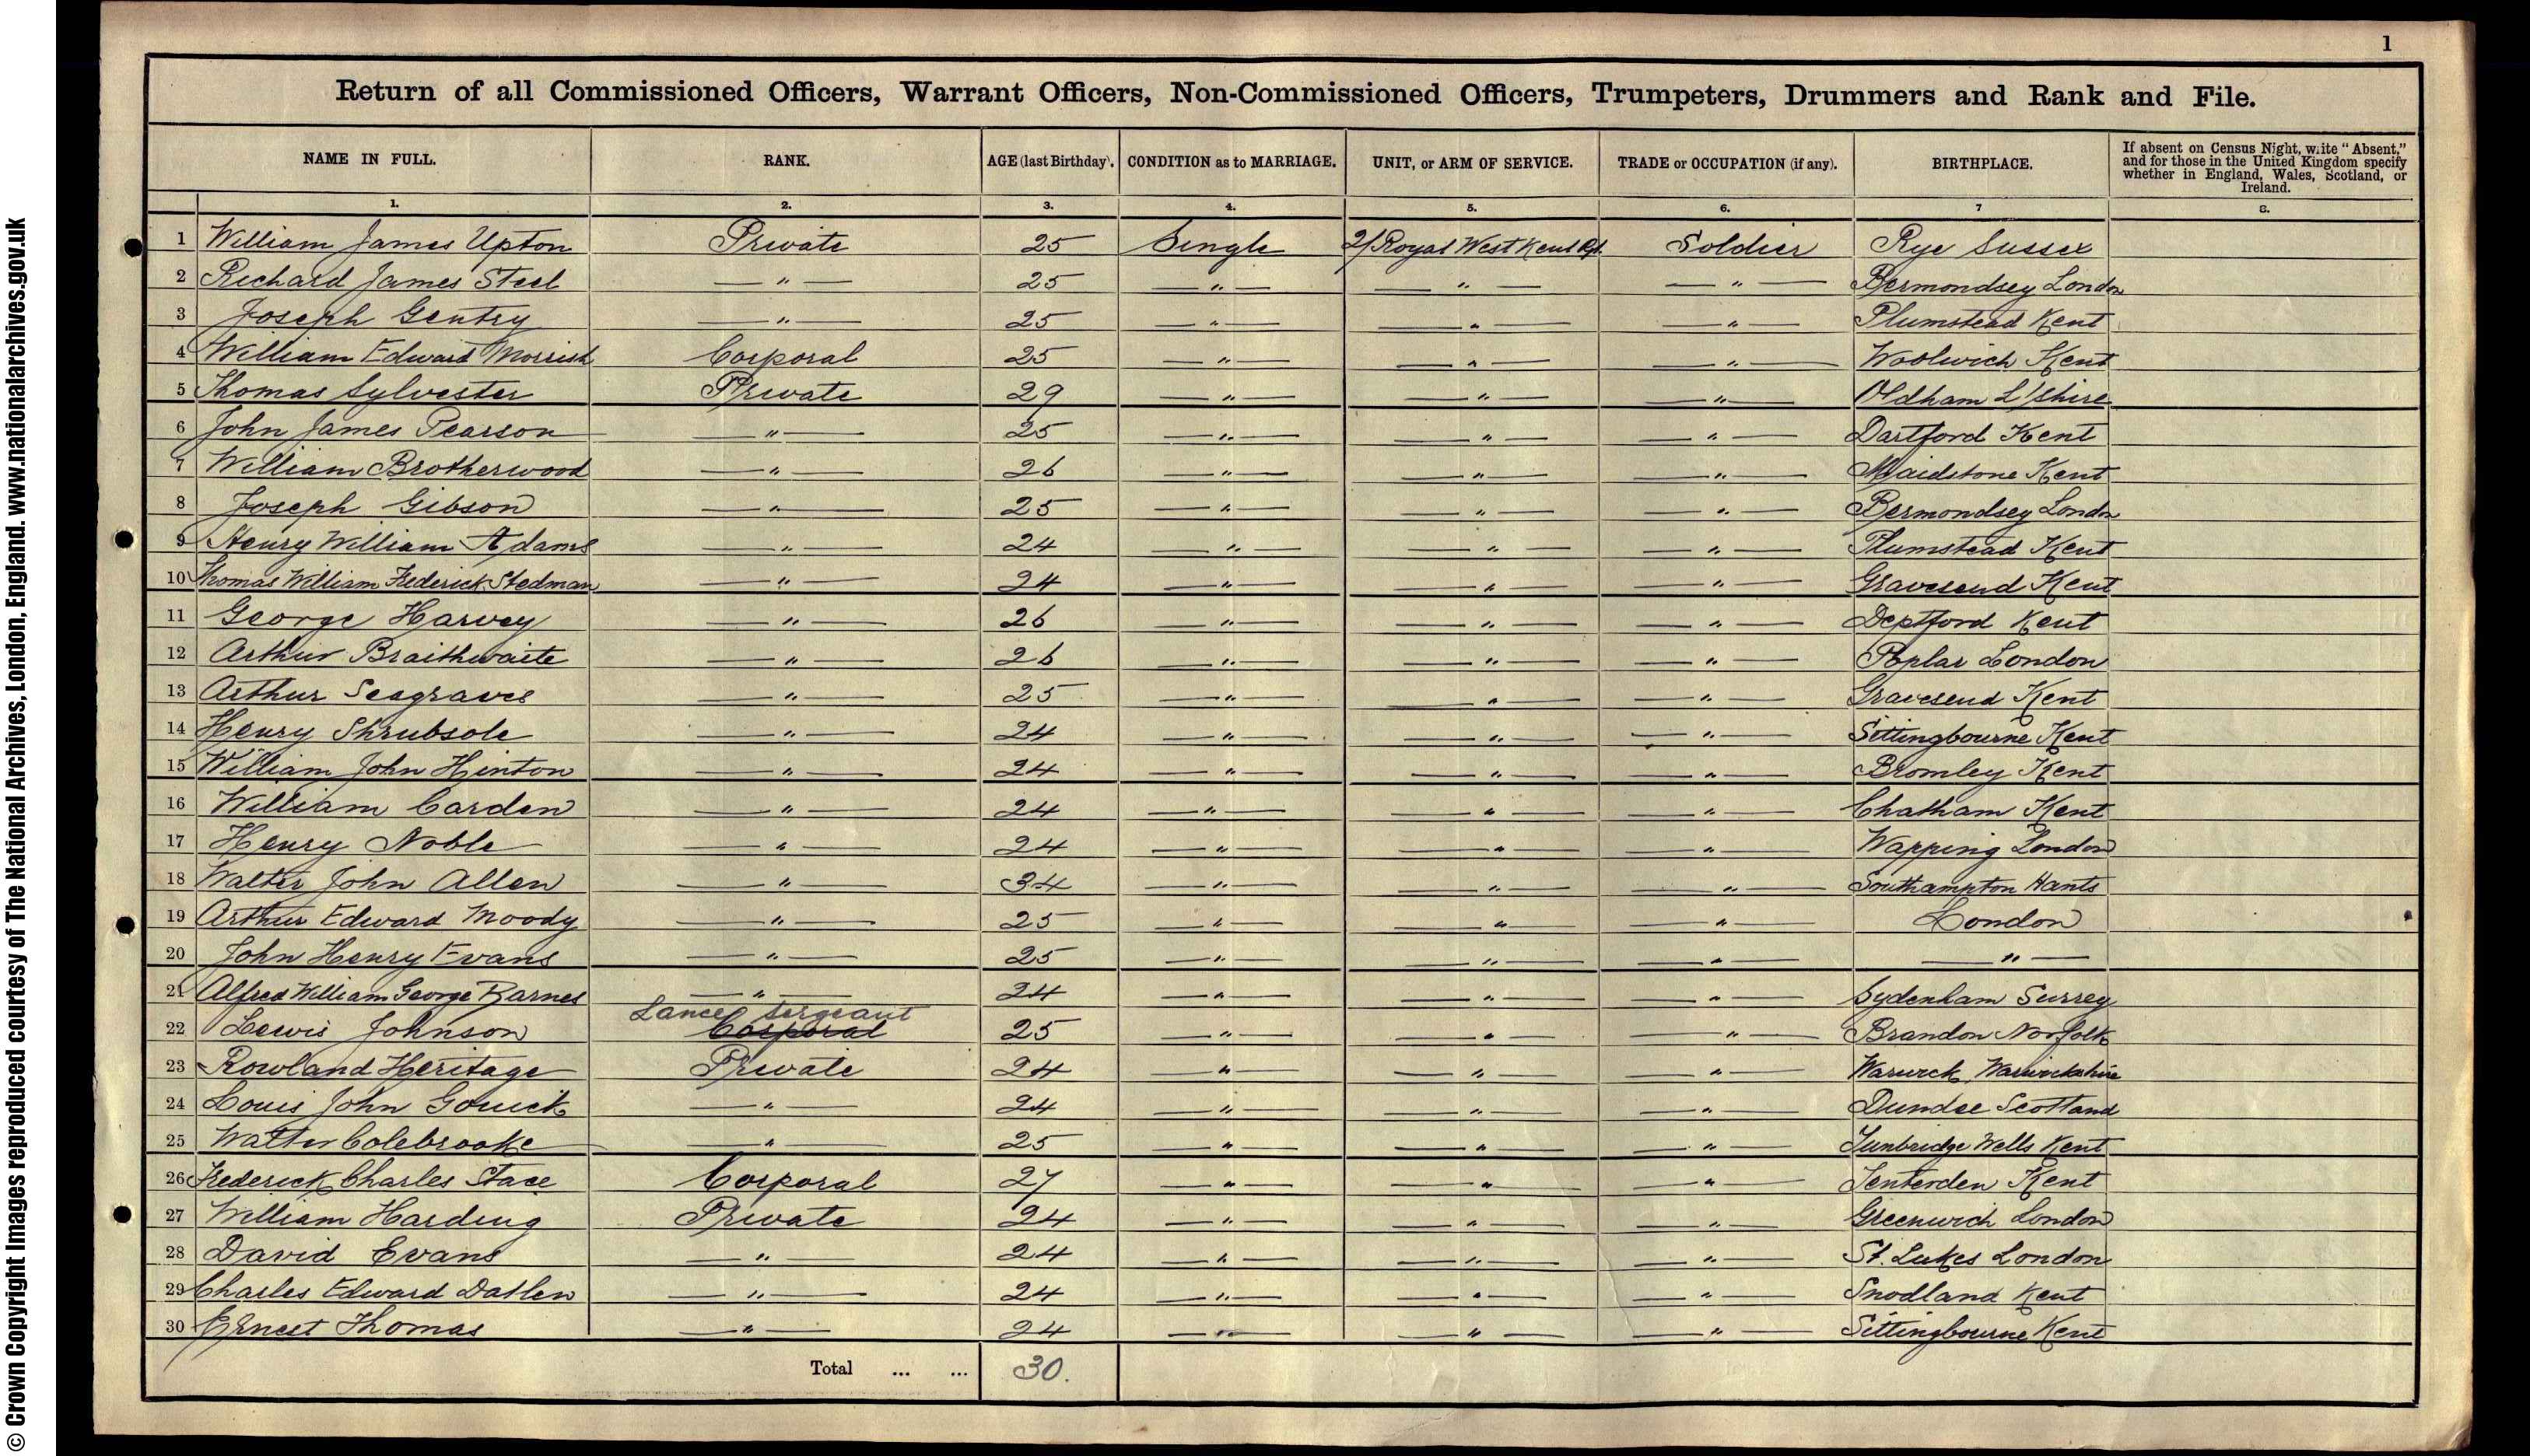 1
Return of all Commissioned Officers, Warrant Officers, Non-Commissioned Officers, Trumpeters, Drummers and Rank and File.
NAME IN FULL. RANK. AGE (last Birthday). CONDITION as to MARRIAGE. UNIT, or ARM OF SERVICE. TRADE or OCCUPATION (if any). BIRTHPLACE. If absent on Census Night, write "Absent," and for those in the United Kingdom specify whether in England, Wales, Scotland, or Ireland.
1. 2. 3. 4. 5. 6. 7 8.
1 William James Upton Private 25 Single 2/Royal West Kent Rgt. Soldier Rye Sussex
2 Richard James Steel — " — 25 — " — — " — — " — Bermondsey London
3 Joseph Gentry — " — 25 — " — — " — — " — Plumstead Kent
4 William Edward Morrish Corporal 25 — " — — " — — " — Woolwich Kent
5 Thomas Sylvester Private 29 — " — — " — — " — Oldham L/shire
6 John James Pearson — " — 25 — " — — " — — " — Dartford Kent
7 William Brotherwood — " — 26 — " — — " — — " — Maidstone Kent
8 Joseph Gibson — " — 25 — " — — " — — " — Bermondsey London
9 Henry William Adams — " — 24 — " — — " — — " — Plumstead Kent
10 Thomas William Frederick Stedman — " — 24 — " — — " — — " — Gravesend Kent
11 George Harvey — " — 26 — " — — " — — " — Deptford Kent
12 Arthur Braithwaite — " — 26 — " — — " — — " — Poplar London
13 Arthur Seagraves — " — 25 — " — — " — — " — Gravesend Kent
14 Henry Shrubsole — " — 24 — " — — " — — " — Sittingbourne Kent
15 William John Hinton — " — 24 — " — — " — — " — Bromley Kent
16 William Carden — " — 24 — " — — " — — " — Chatham Kent
17 Henry Noble — " — 24 — " — — " — — " — Wapping London
18 Walter John Allen — " — 34 — " — — " — — " — Southampton Hants
19 Arthur Edward Moody — " — 25 — " — — " — — " — London
20 John Henry Evans — " — 25 — " — — " — — " — — " —
21 Alfred William George Barnes — " — 24 — " — — " — — " — Sydenham Surrey
Lance Sergeant
22 Lewis Johnson Corporal 25 — " — — " — — " — Brandon Norfolk
23 Rowland Heritage Private 24 — " — — " — — " — Warwick Warwickshire
24 Louis John — " — 24 — " — — " — — " — Dundee Scotland
25 Walter Colebrooke — " — 25 — " — — " — — " — Tunbridge Wells Kent
26 Frederick Charles Stace Corporal 27 — " — — " — — " — Tenterden Kent
27 William Harding Private 24 — " — — " — — " — Greenwich London
28 David Evans — " — 24 — " — — " — — " — St. Lukes London
29 Charles Edward Datlen — " — 24 — " — — " — — " — Snodland Kent
30 Ernest Thomas — " — 24 — " — — " — — " — Sittingbourne Kent
Total ... ... 30.
© Crown Copyright Images reproduced courtesy of The National Archives, London, England. www.nationalarchives.gov.uk